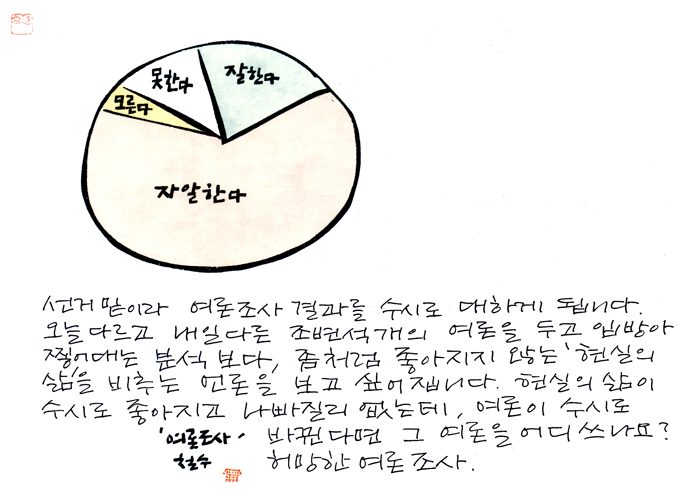 잘한다
못한다
모른다
자알한다
선거 맡이라 여론조사 결과를 수시로 대하게 됩니다.
오늘 다르고 내일 다른 조변석개의 여론을 두고 입방아
찧어대는 분석보다, 좀처럼 좋아지지 않는 '현실의
삶'을 비추는 언론을 보고 싶어집니다. 현실의 삶이
수시로 좋아지고 나빠질리 없는데, 여론이 수시로
바뀐다면 그 여론을 어디 쓰나요?
허망한 여론조사.
'여론조사'
철수